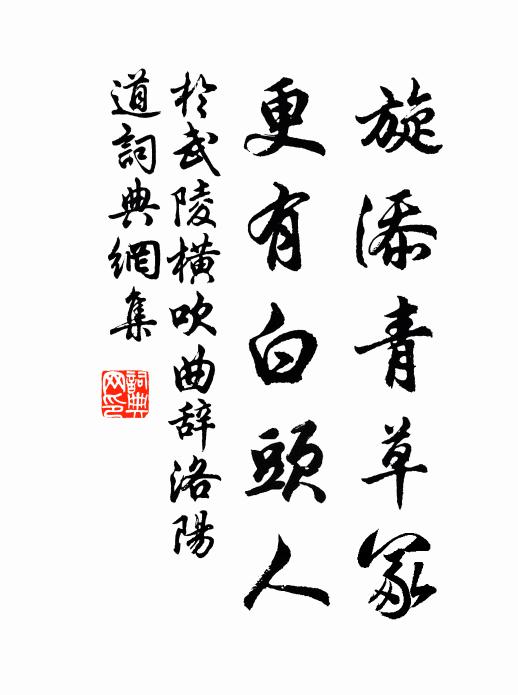 旋添青草冢
更有白頭人
於武陵橫吹曲辞洛陽
道詞典網集
詞典
网印